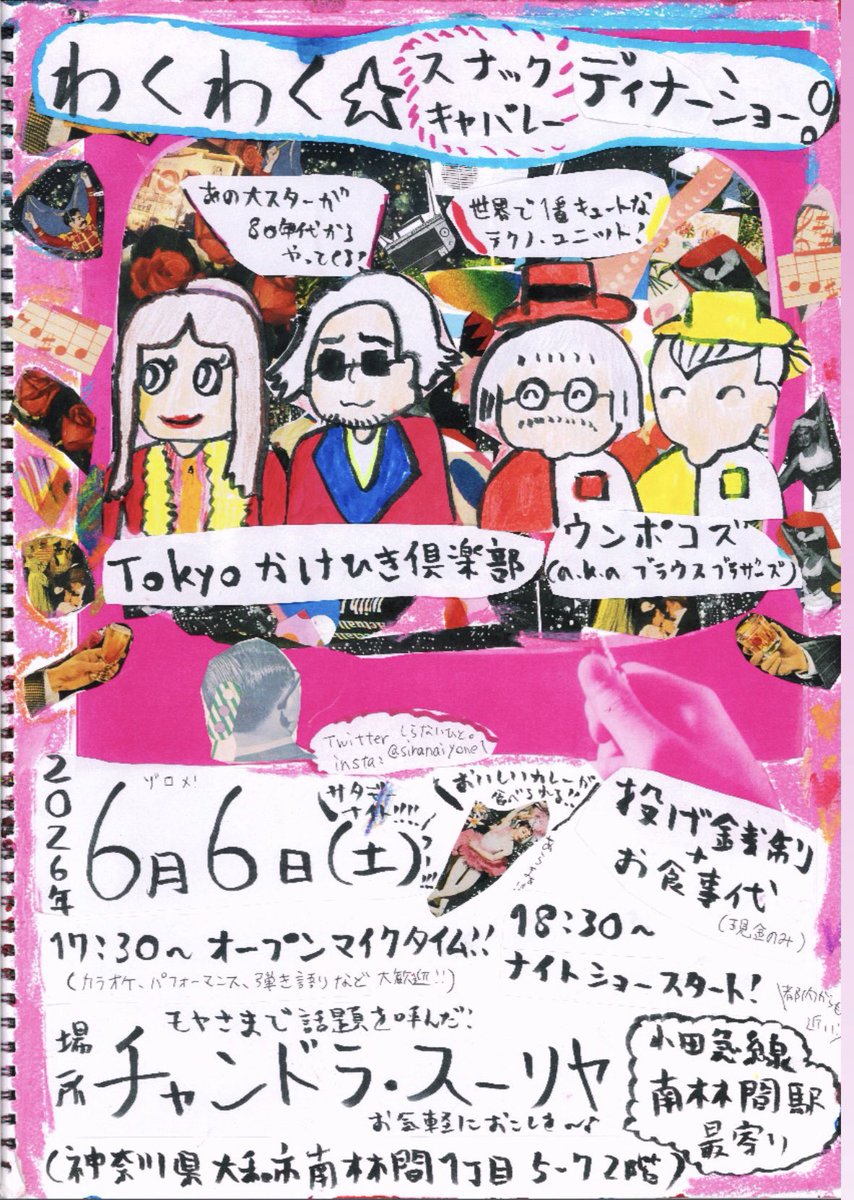 わくわく☆スナックキャバレーディナーショー。
あの大スターが
80年代から
やってくる?
世界で1番キュートな
テクノ・ユニット!
Tokyoかけひき倶楽部
ウンポコズ
(a.k.a ブラウスブラザーズ)
Twitter しらないひと。
insta: @siranaiyone1
2026年
ゾロメ!
6月6日(土)
サタデー
ナイト!!!!
フゥー!!!
おいしいカレーが
食べられる!!
投げ銭制
+
お食事代
(現金のみ)
17:30〜 オープンマイクタイム!!
(カラオケ、パフォーマンス、弾き語りなど 大歓迎!!)
18:30〜
ナイトショースタート!
都内からも
近い!
モヤさまで話題を呼んだ!
場所 チャンドラ・スーリヤ
お気軽におこしを〜♪
小田急線
南林間駅
最寄り
(神奈川県大和市南林間1丁目5-7 2階)